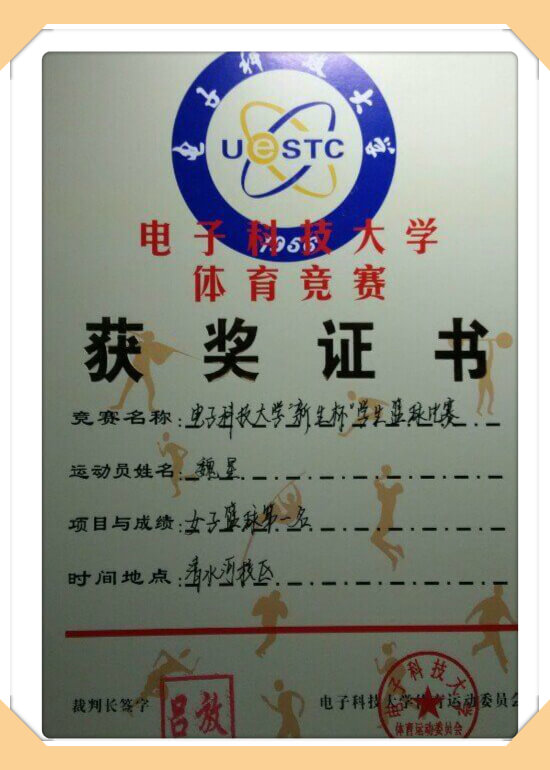 电子科技大学
UeSTC
1956
电子科技大学
体育竞赛
获奖证书
竞赛名称:电子科技大学"新生杯"学生篮球比赛
运动员姓名:魏星
项目与成绩:女子篮球第一名
时间地点:清水河校区
裁判长签字
吕放
电子科技大学体育运动委员会
电子科技大学
体育运动委员会